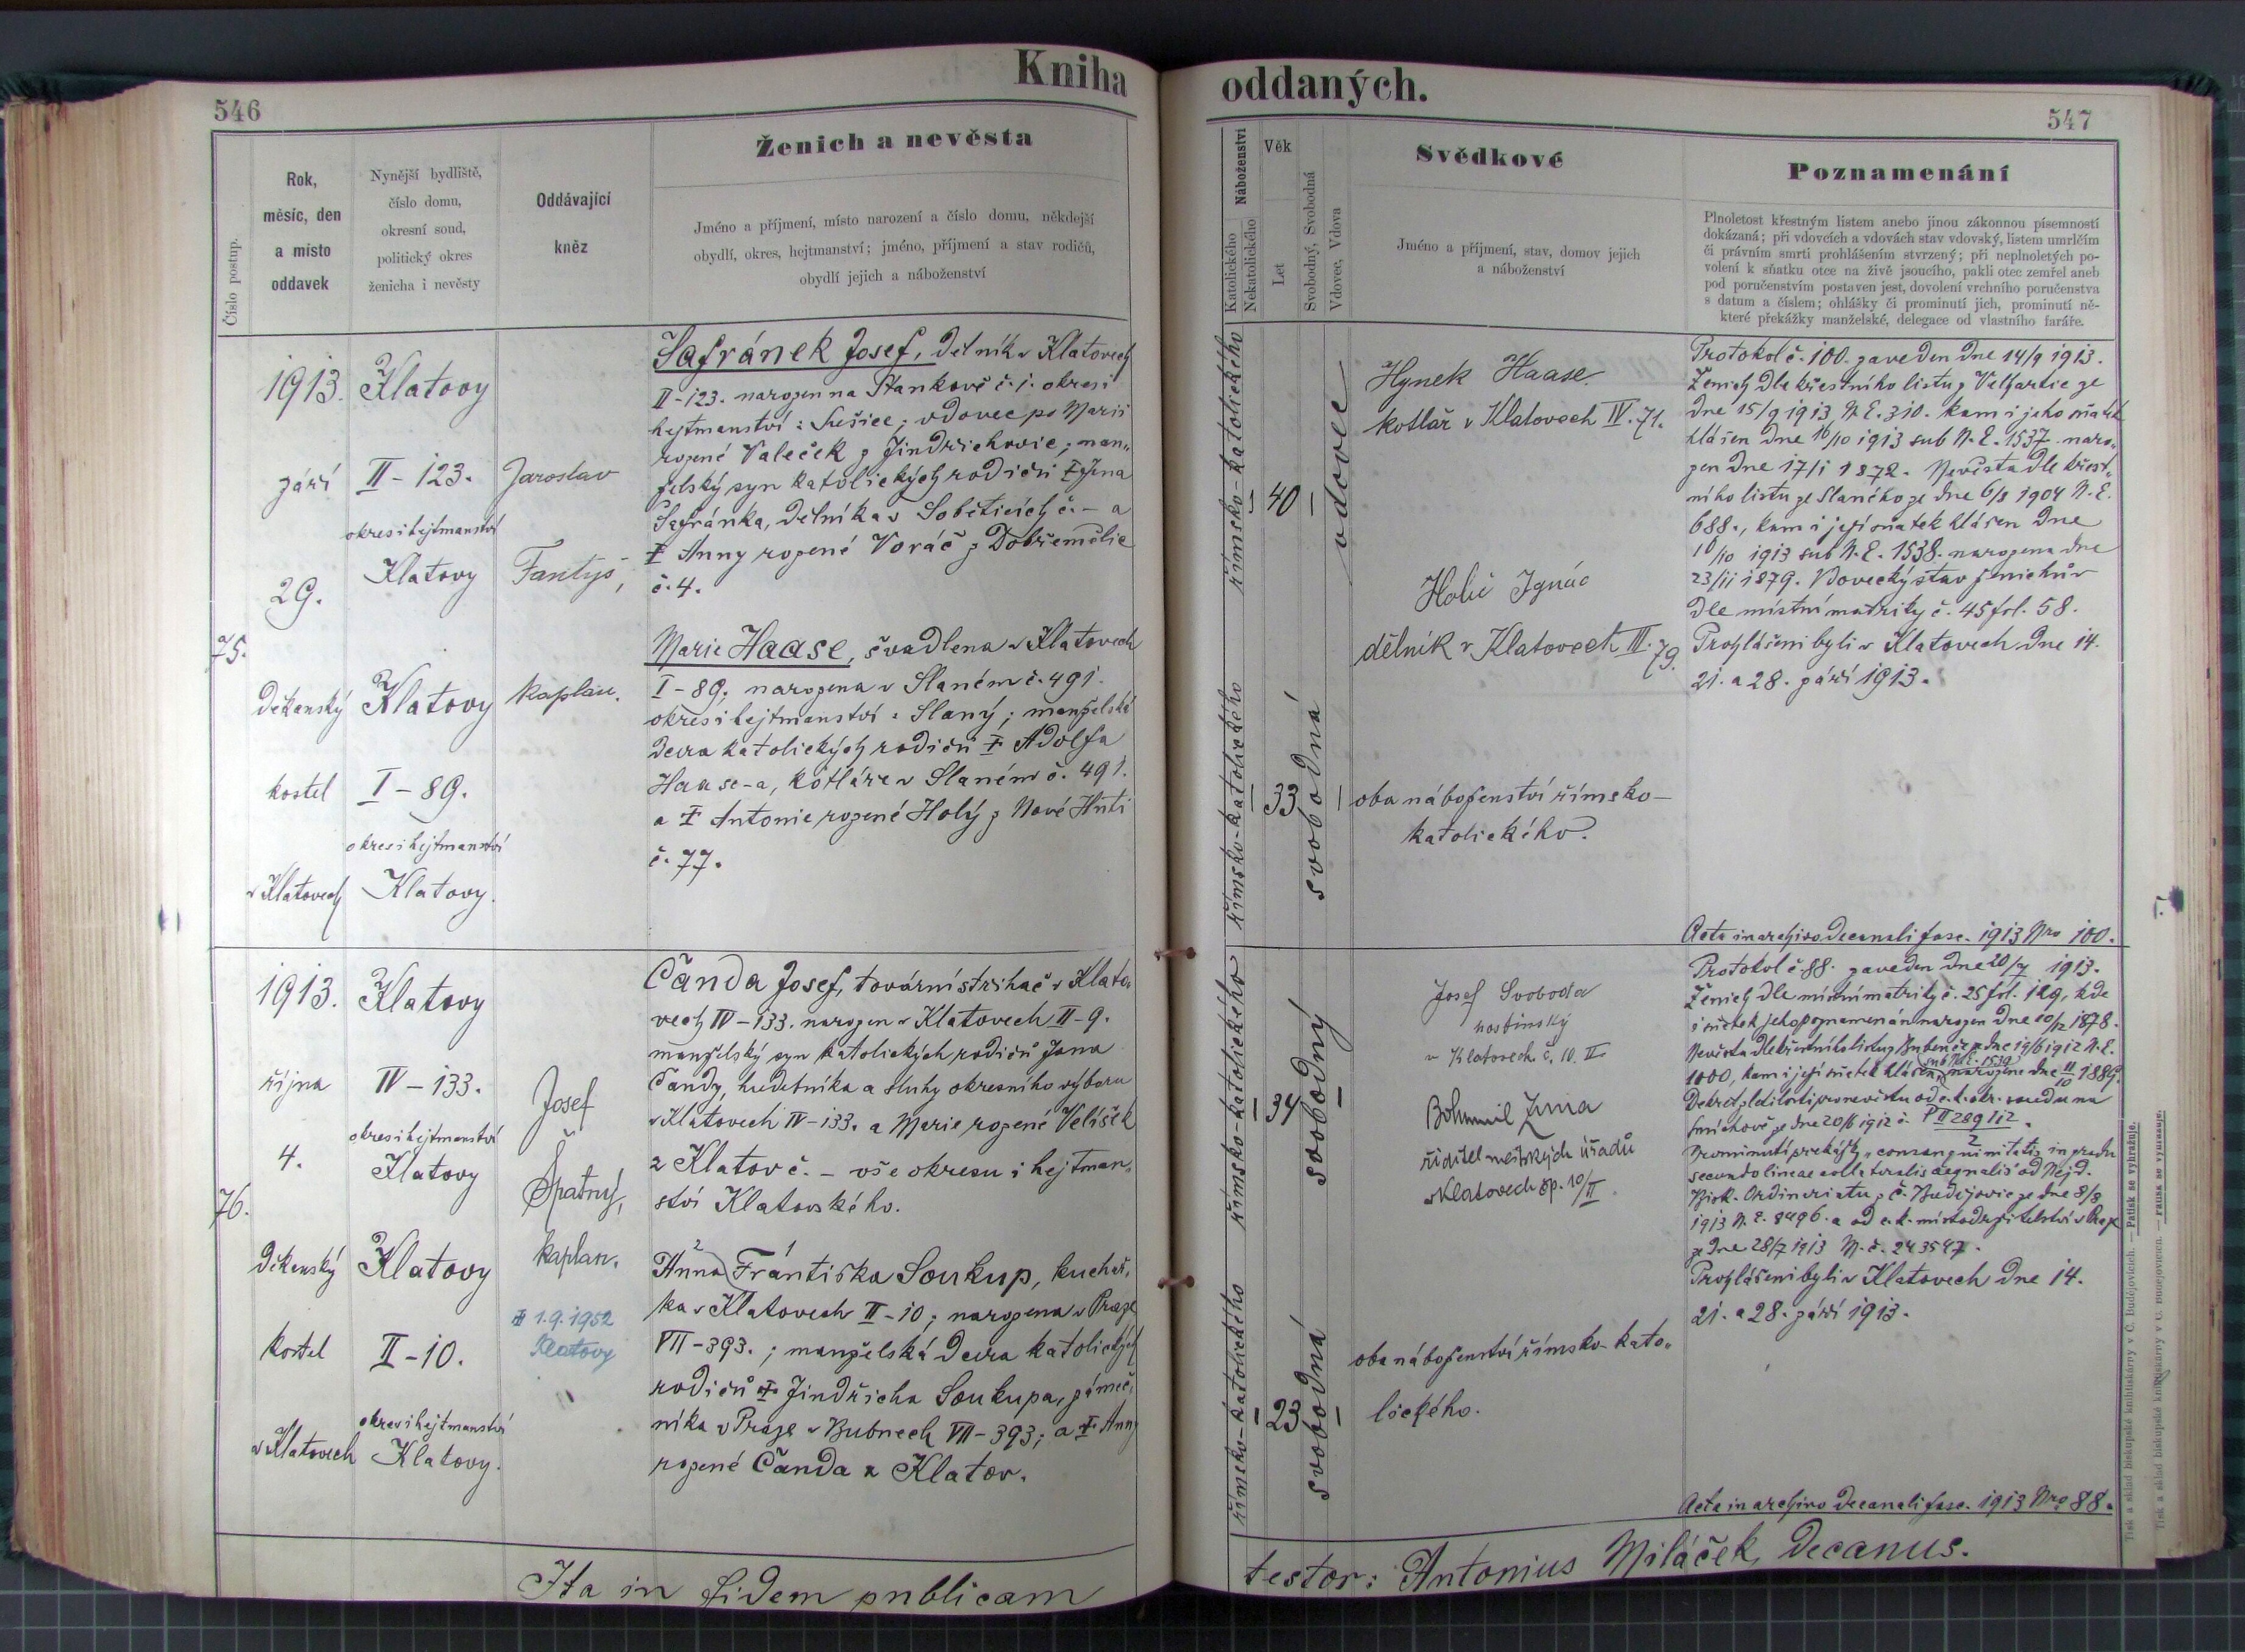 Kniha oddaných.
546
547
Číslo postup.
Rok,
měsíc, den
a místo
oddavek
Nynější bydliště,
číslo domu,
okresní soud,
politický okres
ženicha i nevěsty
Oddávající
kněz
Ženich a nevěsta
Jméno a příjmení, místo narození a číslo domu, někdejší
obydlí, okres, hejtmanství; jméno, příjmení a stav rodičů,
obydlí jejich a náboženství
Náboženství
Katolického
Nekatolického
Věk
Let
Svobodný, Svobodná
Vdovec, Vdova
Svědkové
Jméno a příjmení, stav, domov jejich
a náboženství
Poznamenání
Plnoletost křestným listem anebo jinou zákonnou písemností
dokázaná; při vdovcích a vdovách stav vdovský, listem umrlčím
či právním smrti prohlášením stvrzený; při neplnoletých po-
volení k sňatku otce na živě jsoucího, pakli otec zemřel aneb
pod poručenstvím postaven jest, dovolení vrchního poručenstva
s datum a číslem; ohlášky či prominutí jich, prominutí ně-
které překážky manželské, delegace od vlastního faráře.
75.
1913.
září
29.
Děkanský
kostel
v Klatovech
Klatovy
II – 123.
okres i hejtmanství
Klatovy
Klatovy
I – 89.
okres i hejtmanství
Klatovy.
Jaroslav
Fantyš,
kaplan.
Šafránek Josef, dělník v Klatovech
II – 123. narozen na Stankově č. 1. okres i
hejtmanství: Sušice; vdovec po Marii
rozené Valeček z Jindřichovic; man„
želský syn katolických rodičů † Jana
Šafránka, dělníka v Soběticích č. – a
† Anny rozené Voráč z Dobřemělic
č. 4.
Marie Haase, švadlena v Klatovech
I – 89; narozena v Slaném č. 491.
okres i hejtmanství: Slaný; manželská
dcera katolických rodičů † Adolfa
Haase-a, kotláře v Slaném č. 491.
a † Antonie rozené Holý z Nové Huti
č. 77.
římsko-katolického
40
vdovec
římsko-katolického
33
svobodná
Hynek Haase
kotlář v Klatovech IV. 71.
Holič Ignác
dělník v Klatovech III. 79.
oba náboženství římsko –
katolického.
Protokol č. 100. zaveden dne 14/9 1913.
Ženich dle křestního listu z Velhartic ze
dne 15/9 1913 N. E. 310. kam i jeho sňatek
hlášen dne 16/10 1913 sub N. E. 1537 naro„
zen dne 17/1 1872. Nevěsta dle křest„
ního listu ze Slaného ze dne 6/8 1904 N. E.
688., kam i její sňatek hlášen dne
16/10 1913 sub N. E. 1538. narozena dne
23/11 1879. Vdovecký stav ženichův
dle místní matriky č. 45 fol. 58.
Prohlášeni byli v Klatovech dne 14.
21. a 28. září 1913.
Acta in archivo decanali fasc. 1913 Nro 100.
76.
1913.
října
4.
Děkanský
kostel
v Klatovech
Klatovy
IV – 133.
okres i hejtmanství
Klatovy
Klatovy
II – 10.
okres i hejtmanství
Klatovy.
Josef
Špatný,
kaplan.
† 1. 9. 1952
Klatovy
Čanda Josef, tovární střihač v Klato„
vech IV – 133. narozen v Klatovech II – 9.
manželský syn katolických rodičů Jana
Čandy, hudebníka a sluhy okresního výboru
v Klatovech IV – 133. a Marie rozené Velíšek
z Klatov č. – vše okresu i hejtman„
ství Klatovského.
2 1
Anna Františka Soukup, kuchař„
ka v Klatovech II – 10; narozena v Praze
VII – 393.; manželská dcera katolických
rodičů † Jindřicha Soukupa, zámeč„
níka v Praze v Bubnech VII – 393; a † Anny
rozené Čanda z Klatov.
římsko-katolického
34
svobodný
římsko-katolického
23
svobodná
Josef Svoboda
hostinský
v Klatovech č. 10. II.
Bohumil Zima
ředitel městských úřadů
v Klatovech čp. 10/II
oba náboženství římsko-kato„
lického.
Protokol č. 88. zaveden dne 20/7 1913.
Ženich dle místní matriky č. 25 fol. 129, kde
i sňatek jeho poznamenán narozen dne 10/12 1878.
Nevěsta dle křestního listu z Bubenče ze dne 19/6 1912 N. E.
sub N. E. 1539
1000, kam i její sňatek hlášen, narozena dne 11/10 1889.
Dekret zletilosti pro nevěstu od c. k. okr. soudu na
Smíchově ze dne 20/6 1912 č. P II 289 112/2.
Prominutí překážky „consanguinitatis in gradu
secundo lineae collateralis aequalis" od Nejd.
Bisk. Ordinariatu z Č. Budějovic ze dne 8/8
1913 N. E. 8496. a od c. k. místodržitelství v Praze
ze dne 28/7 1913 N. č. 243547.
Prohlášeni byli v Klatovech dne 14.
21. a 28. září 1913.
Acta in archivo decanali fasc. 1913 Nro 88.
Ita in fidem publicam
testor: Antonius Miláček, Decanus.
Tisk a sklad biskupské knihtiskárny v Č. Budějovicích. — Patisk se vyhražuje.